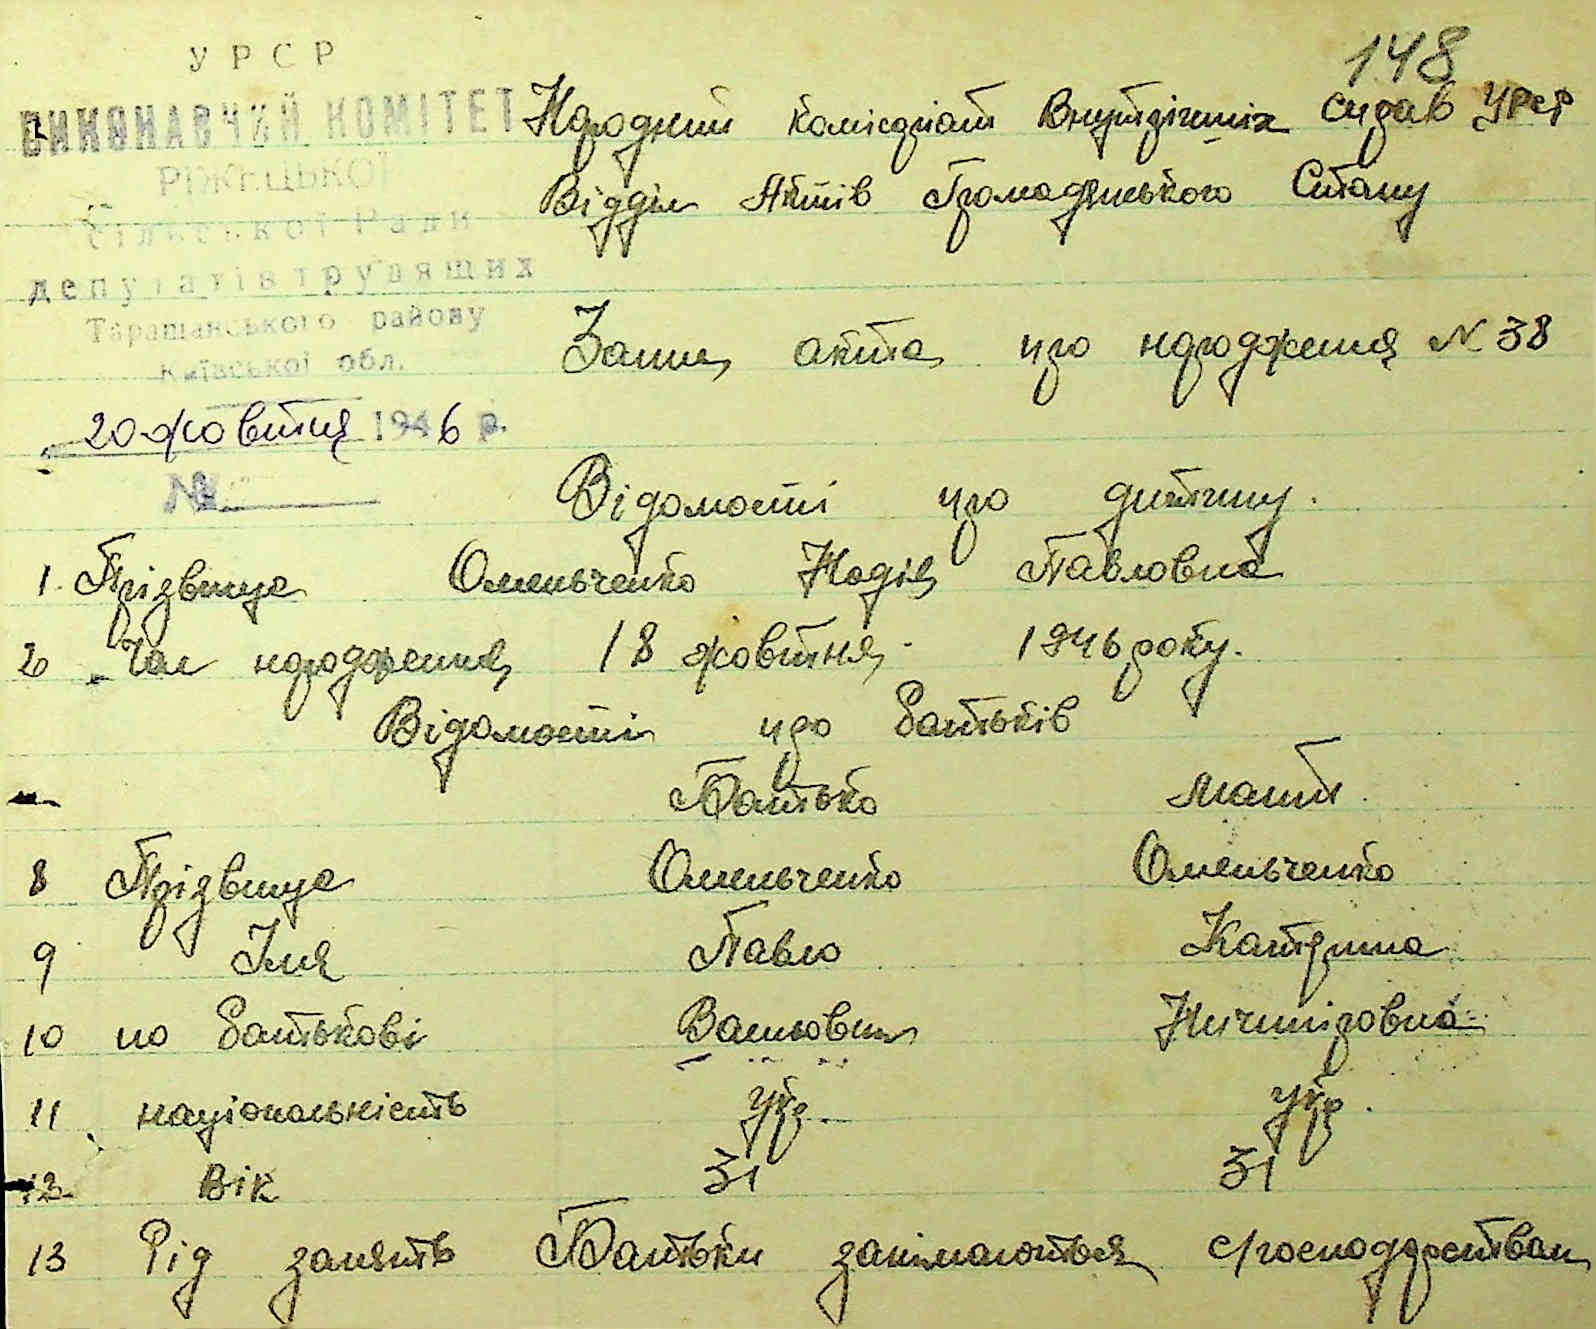 148
УРСР
ВИКОНАВЧИЙ КОМІТЕТ
РІЖЕЦЬКОЇ
Сільської Ради
депутатів трудящих
Таращанського району
Київської обл.
20 жовтня 1946 р.
№
Народний комісаріат Внутрішніх справ УРСР
Відділ Актів Громадянського Стану
Запис акта про народження N 38
Відомості про дитину.
1. Прізвище Омельченко Надія Павловна
2 Час народження 18 жовтня 1946 року.
Відомості про батьків
Батько мати
8 Прізвище Омельченко Омельченко
9 Імя Павло Катерина
10 по батькові Васильович Ничипоровна
11 національність укр. укр.
12 Вік 31 31
13 Рід занять Батьки занімаються с/господарством